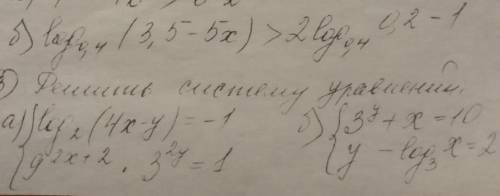 б) log₀,₄ (3,5-5x) > 2log₀,₄ 0,2 - 1
3) Решить систему уравнений.
а) {log₂ (4x-y) = -1 б) {3ʸ + x = 10
{9²ˣ⁺² · 3²ʸ = 1 {y - log₃ x = 2